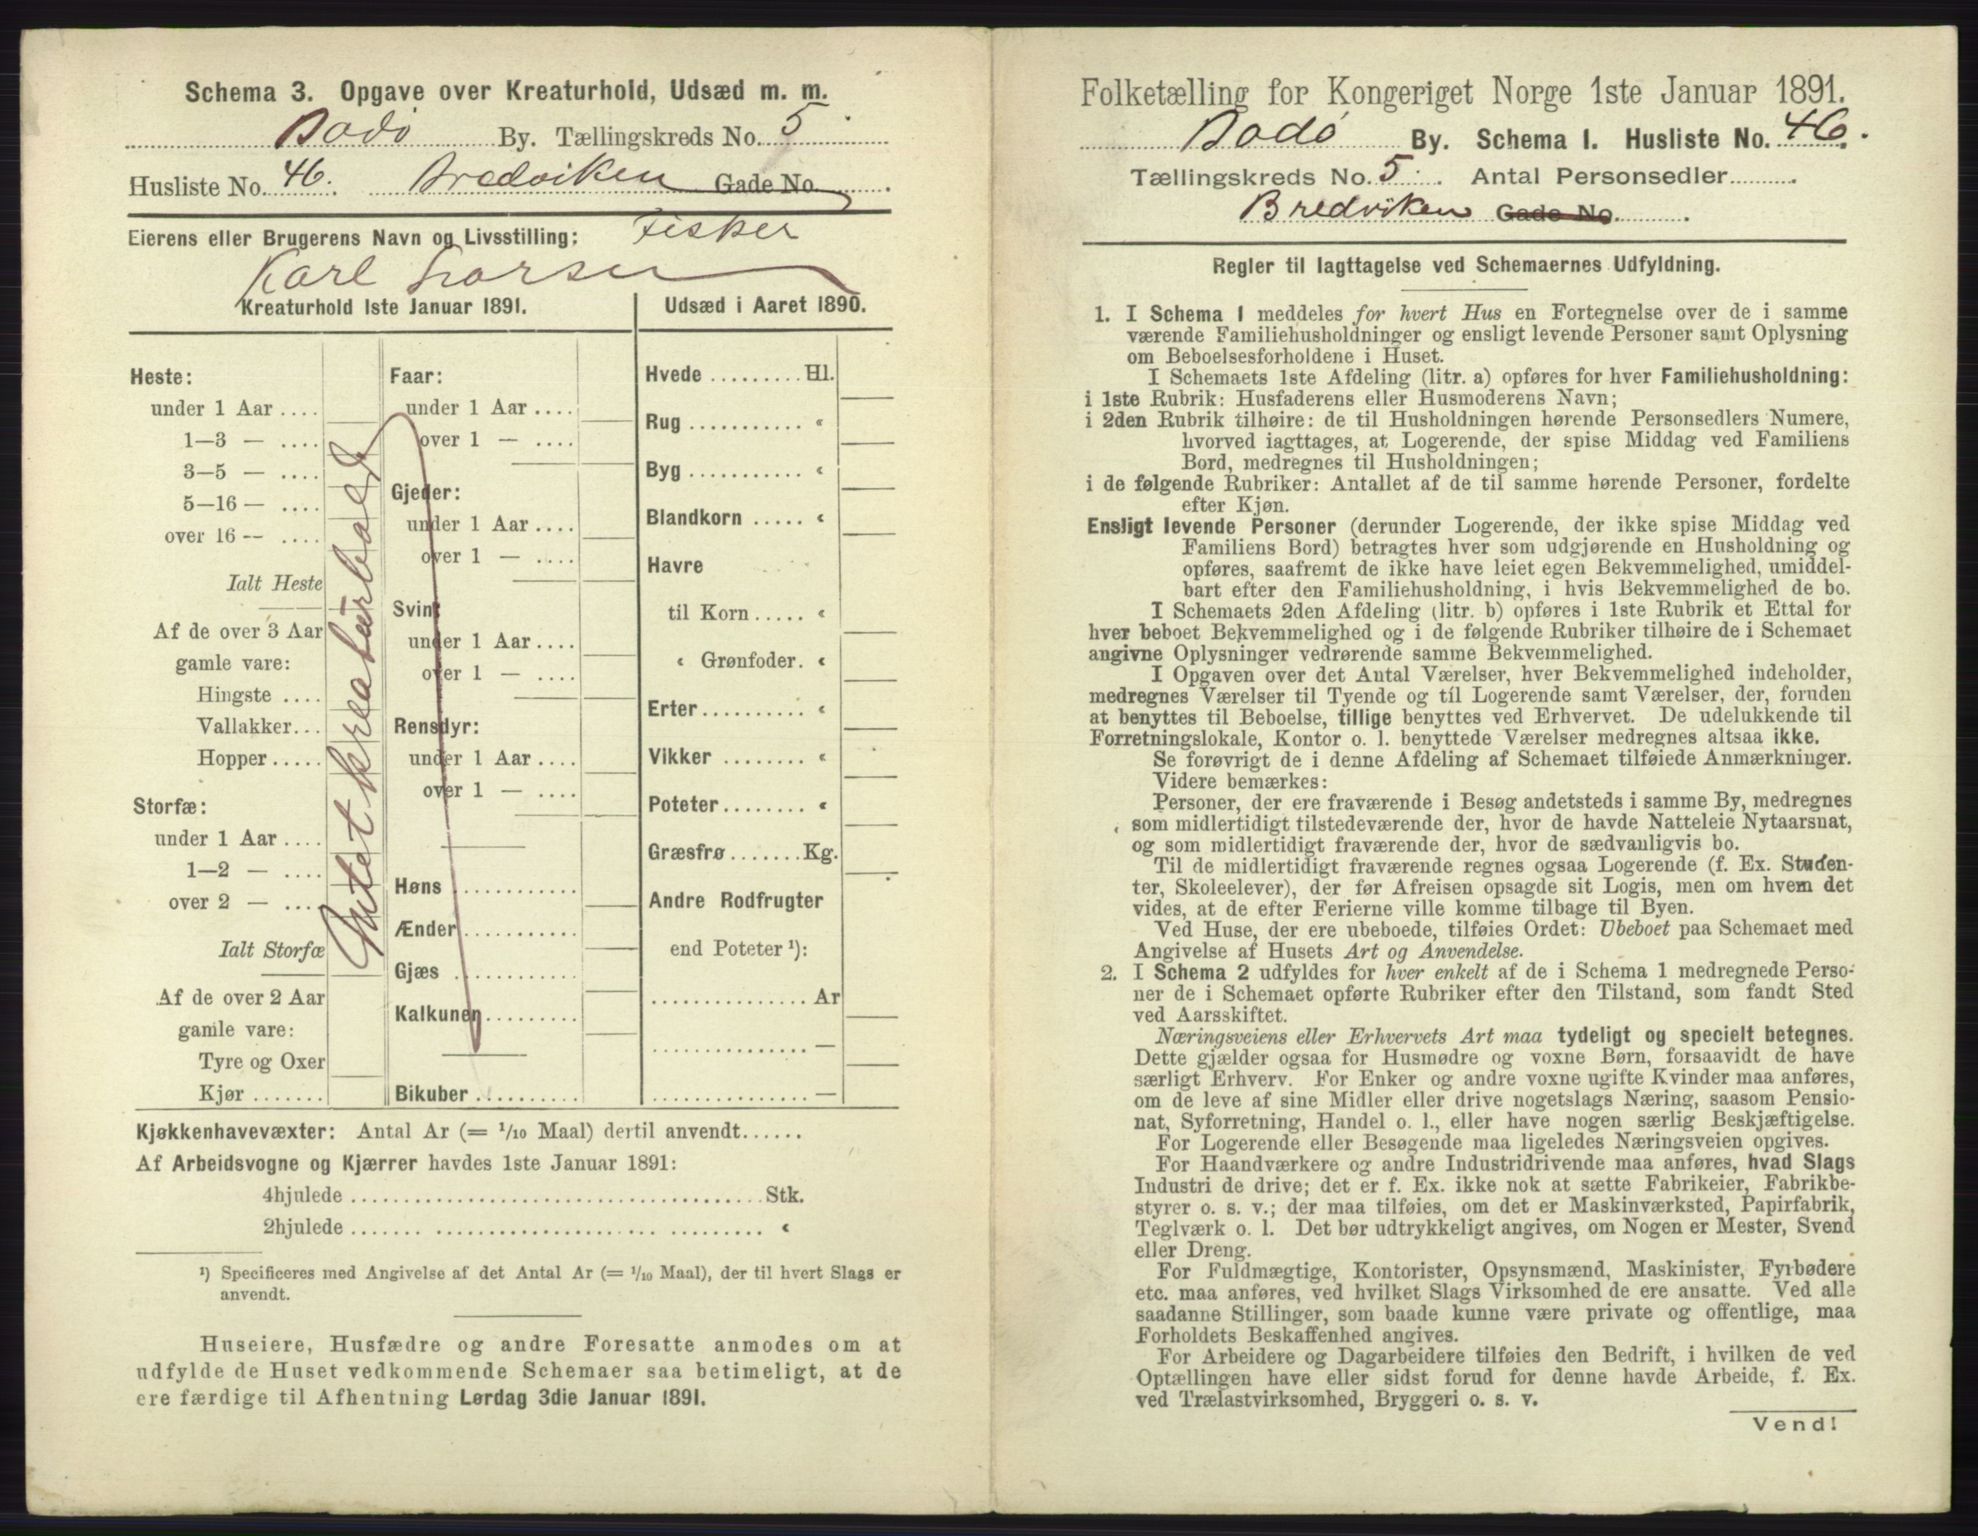 Schema 3. Opgave over Kreaturhold, Udsæd m. m.
Bodø By. Tællingskreds No. 5
Husliste No. 46. Bredviken Gade No.
Eierens eller Brugerens Navn og Livsstilling: Fisker
Karl Larsen
Kreaturhold 1ste Januar 1891.
Heste:
under 1 Aar ....
1—3 — ....
3—5 — ....
5—16 — ....
over 16 — ....
Ialt Heste
Af de over 3 Aar
gamle vare:
Hingste ....
Vallakker...
Hopper.....
Storfæ:
under 1 Aar ....
1—2 — ....
over 2 — ....
Ialt Storfæ
Af de over 2 Aar
gamle vare:
Tyre og Oxer
Kjør .......
Intet kreaturhold
Faar:
under 1 Aar ....
over 1 — ....
Gjeder:
under 1 Aar ....
over 1 — ....
Svin:
under 1 Aar ....
over 1 — ....
Rensdyr:
under 1 Aar ....
over 1 — ....
Høns ...........
Ænder...........
Gjæs ...........
Kalkuner.........
Bikuber ..........
Udsæd i Aaret 1890.
Hvede ......... Hl.
Rug ........... «
Byg ........... «
Blandkorn ..... «
Havre
til Korn ..... «
« Grønfoder. «
Erter.......... «
Vikker ........ «
Poteter ........ «
Græsfrø ....... Kg.
Andre Rodfrugter
end Poteter ¹):
............... Ar
............... —
............... —
Kjøkkenhavevæxter: Antal Ar (= 1/10 Maal) dertil anvendt......
Af Arbeidsvogne og Kjærrer havdes 1ste Januar 1891:
4hjulede ..................................... Stk.
2hjulede ..................................... «
¹) Specificeres med Angivelse af det Antal Ar (= 1/10 Maal), der til hvert Slags er
anvendt.
Huseiere, Husfædre og andre Foresatte anmodes om at
udfylde de Huset vedkommende Schemaer saa betimeligt, at de
ere færdige til Afhentning Lørdag 3die Januar 1891.
Folketælling for Kongeriget Norge 1ste Januar 1891.
Bodø By. Schema 1. Husliste No. 46.
Tællingskreds No. 5. Antal Personsedler..........
Bredviken Gade No.
Regler til Iagttagelse ved Schemaernes Udfyldning.
1. I Schema 1 meddeles for hvert Hus en Fortegnelse over de i samme
værende Familiehusholdninger og ensligt levende Personer samt Oplysning
om Beboelsesforholdene i Huset.
I Schemaets 1ste Afdeling (litr. a) opføres for hver Familiehusholdning:
i 1ste Rubrik: Husfaderens eller Husmoderens Navn;
i 2den Rubrik tilhøire: de til Husholdningen hørende Personsedlers Numere,
hvorved iagttages, at Logerende, der spise Middag ved Familiens
Bord, medregnes til Husholdningen;
i de følgende Rubriker: Antallet af de til samme hørende Personer, fordelte
efter Kjøn.
Ensligt levende Personer (derunder Logerende, der ikke spise Middag ved
Familiens Bord) betragtes hver som udgjørende en Husholdning og
opføres, saafremt de ikke have leiet egen Bekvemmelighed, umiddel-
bart efter den Familiehusholdning, i hvis Bekvemmelighed de bo.
I Schemaets 2den Afdeling (litr. b) opføres i 1ste Rubrik et Ettal for
hver beboet Bekvemmelighed og i de følgende Rubriker tilhøire de i Schemaet
angivne Oplysninger vedrørende samme Bekvemmelighed.
I Opgaven over det Antal Værelser, hver Bekvemmelighed indeholder,
medregnes Værelser til Tyende og til Logerende samt Værelser, der, foruden
at benyttes til Beboelse, tillige benyttes ved Erhvervet. De udelukkende til
Forretningslokale, Kontor o. l. benyttede Værelser medregnes altsaa ikke.
Se forøvrigt de i denne Afdeling af Schemaet tilføiede Anmærkninger.
Videre bemærkes:
Personer, der ere fraværende i Besøg andetsteds i samme By, medregnes
som midlertidigt tilstedeværende der, hvor de havde Natteleie Nytaarsnat,
og som midlertidigt fraværende der, hvor de sædvanligvis bo.
Til de midlertidigt fraværende regnes ogsaa Logerende (f. Ex. Studen-
ter, Skoleelever), der før Afreisen opsagde sit Logis, men om hvem det
vides, at de efter Ferierne ville komme tilbage til Byen.
Ved Huse, der ere ubeboede, tilføies Ordet: Ubeboet paa Schemaet med
Angivelse af Husets Art og Anvendelse.
2. I Schema 2 udfyldes for hver enkelt af de i Schema 1 medregnede Perso-
ner de i Schemaet opførte Rubriker efter den Tilstand, som fandt Sted
ved Aarsskiftet.
Næringsveiens eller Erhvervets Art maa tydeligt og specielt betegnes.
Dette gjælder ogsaa for Husmødre og voxne Børn, forsaavidt de have
særligt Erhverv. For Enker og andre voxne ugifte Kvinder maa anføres,
om de leve af sine Midler eller drive nogetslags Næring, saasom Pensio-
nat, Syforretning, Handel o. l., eller have nogen særlig Beskjæftigelse.
For Logerende eller Besøgende maa ligeledes Næringsveien opgives.
For Haandværkere og andre Industridrivende maa anføres, hvad Slags
Industri de drive; det er f. Ex. ikke nok at sætte Fabrikeier, Fabrikbe-
styrer o. s. v.; der maa tilføies, om det er Maskinværksted, Papirfabrik,
Teglværk o. l. Det bør udtrykkeligt angives, om Nogen er Mester, Svend
eller Dreng.
For Fuldmægtige, Kontorister, Opsynsmænd, Maskinister, Fyrbødere
etc. maa anføres, ved hvilket Slags Virksomhed de ere ansatte. Ved alle
saadanne Stillinger, som baade kunne være private og offentlige, maa
Forholdets Beskaffenhed angives.
For Arbeidere og Dagarbeidere tilføies den Bedrift, i hvilken de ved
Optællingen have eller sidst forud for denne havde Arbeide, f. Ex.
ved Trælastvirksomhed, Bryggeri o. s. v.
Vend!